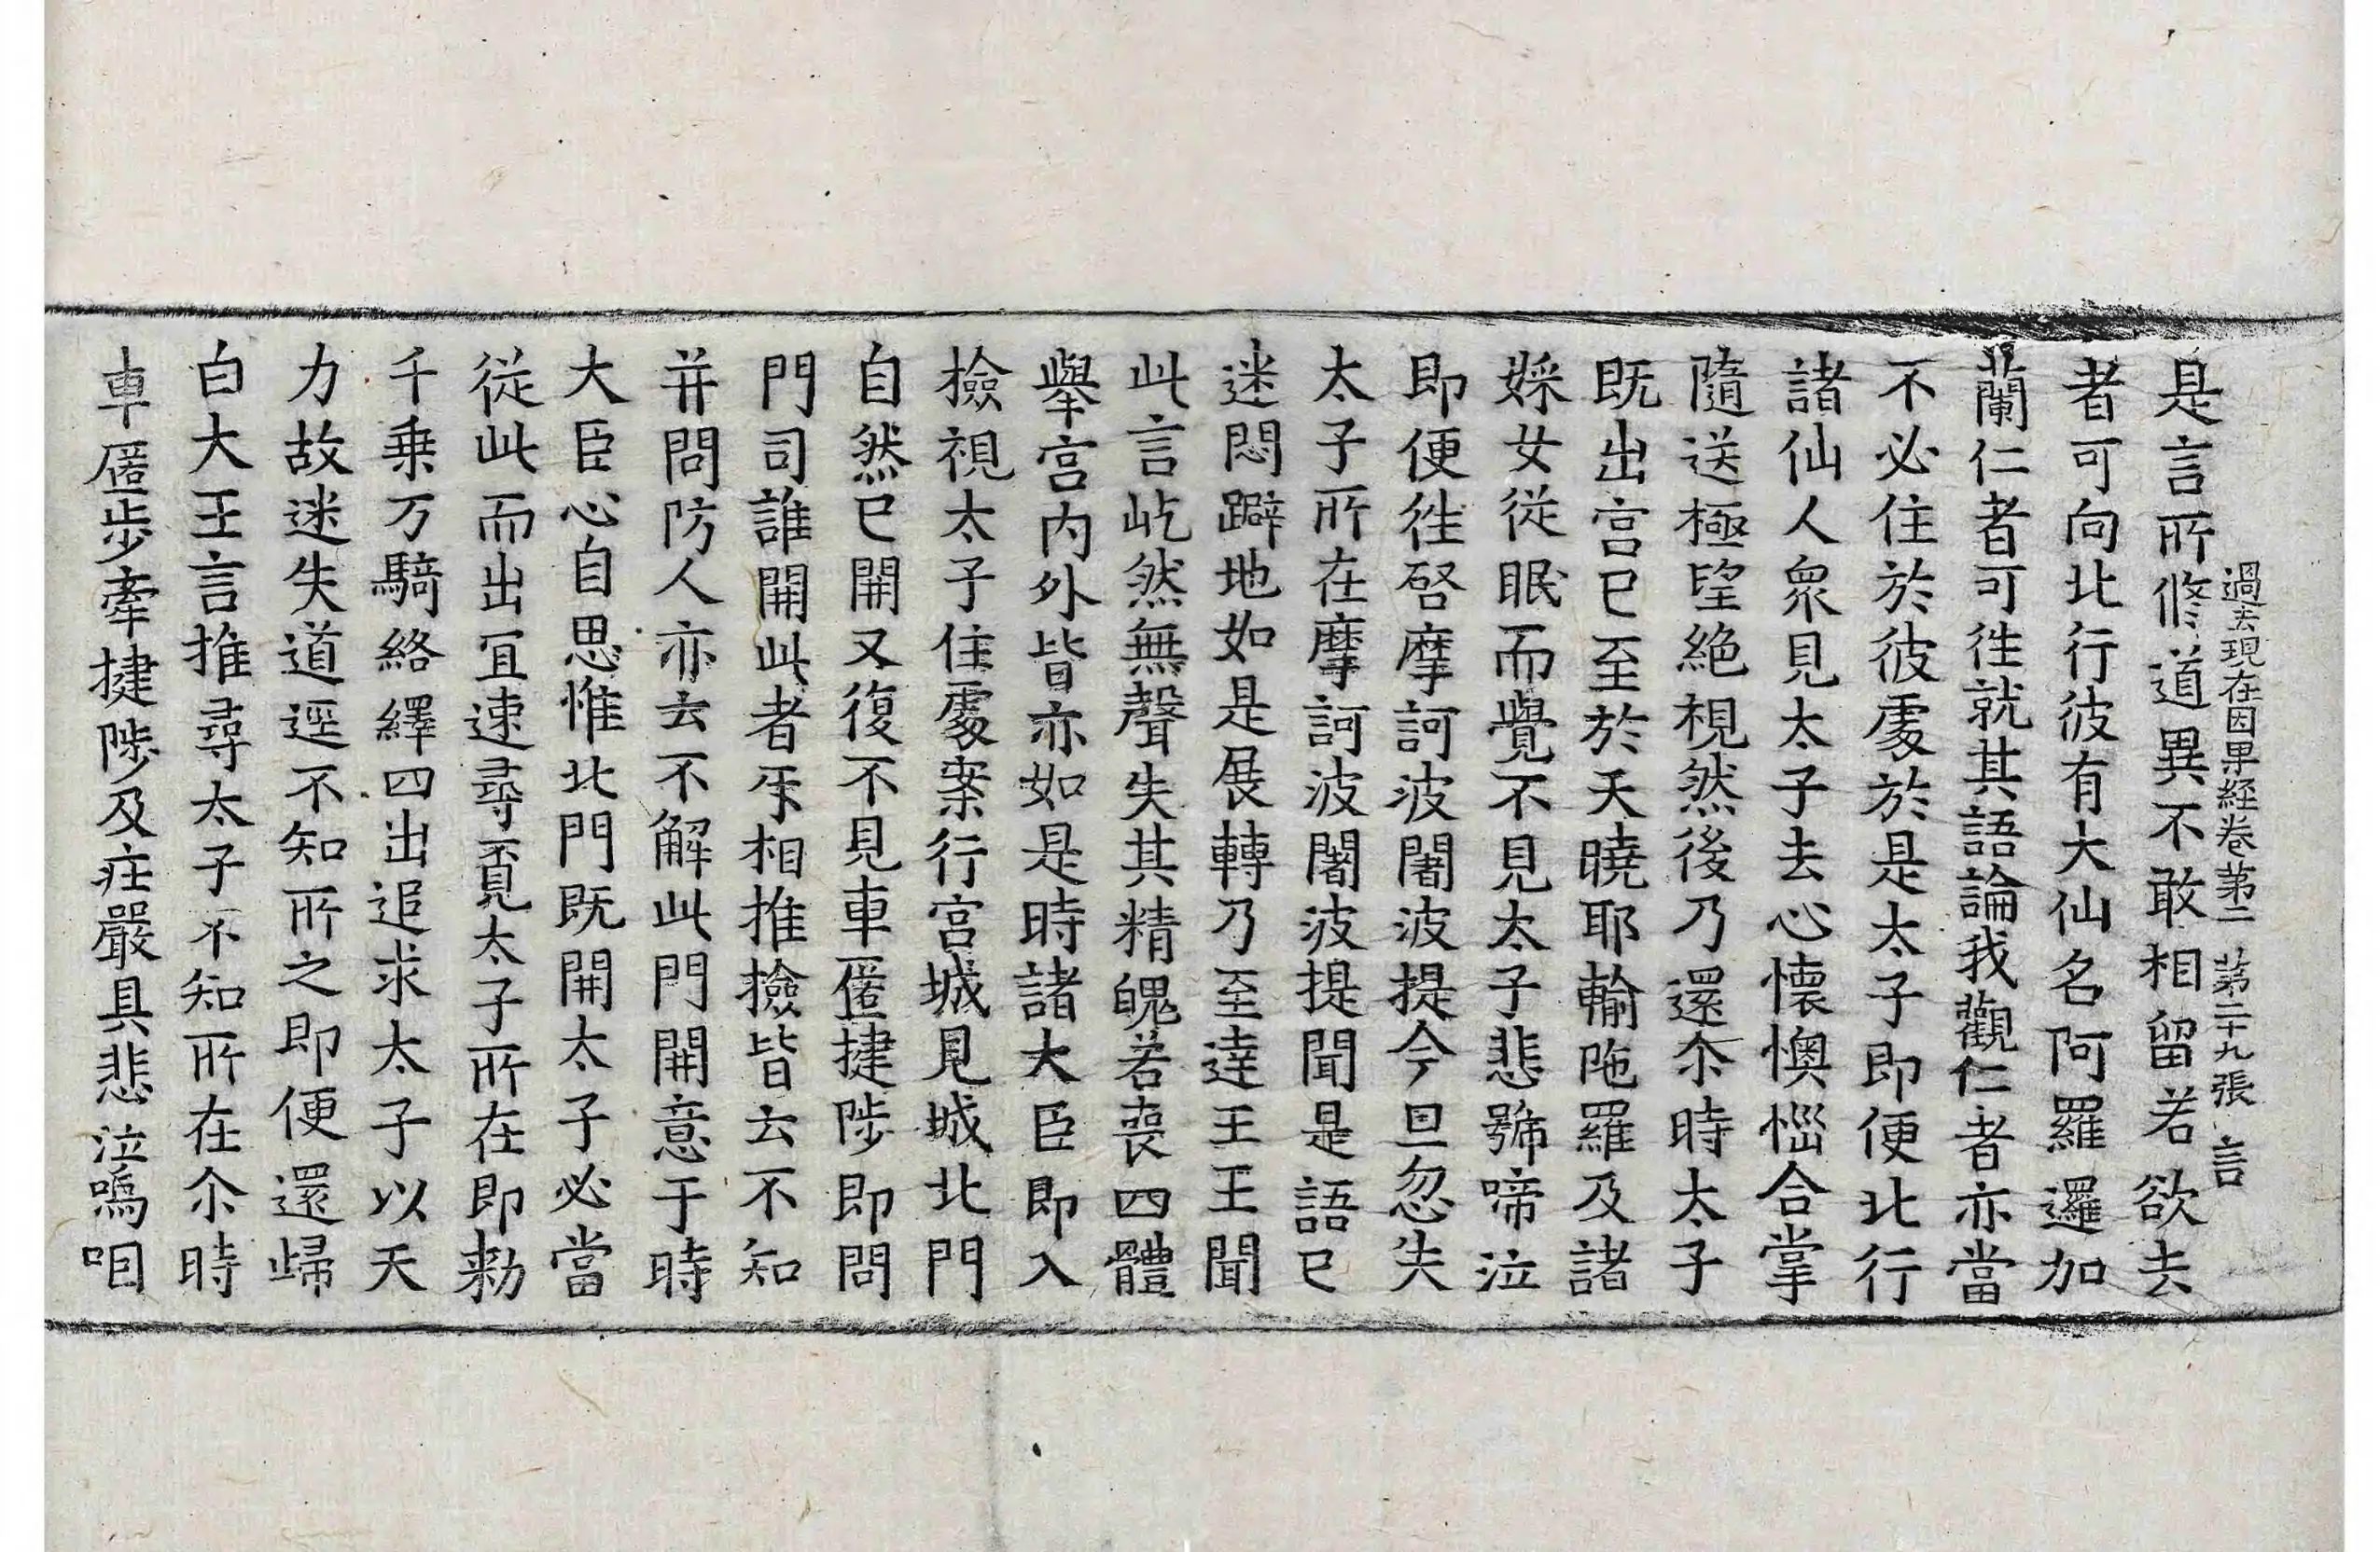 過去現在因果経卷第二　第二十九張　言
是言所修道異不敢相留若欲去
者可向北行彼有大仙名阿羅邏加
蘭仁者可往就其語論我觀仁者亦當
不必住於彼處於是太子即便北行
諸仙人眾見太子去心懷懊惱合掌
隨送極望絕視然後乃還尒時太子
既出宮已至於天曉耶輸陁羅及諸
婇女從眠而覺不見太子悲號啼泣
即便往啓摩訶波闍波提今旦忽失
太子所在摩訶波闍波提聞是語已
迷悶躃地如是展轉乃至達王王聞
此言屹然無聲失其精魄若喪四體
舉宮內外皆亦如是時諸大臣即入
檢視太子住處案行宮城見城北門
自然已開又復不見車匿揵陟即問
門司誰開此者㸦相推撿皆云不知
并問防人亦云不解此門開意于時
大臣心自思惟北門既開太子必當
從此而出冝速尋覓太子所在即勑
千乗万騎絡繹四出追求太子以天
力故迷失道逕不知所之即便還歸
白大王言推尋太子不知所在尒時
車匿步牽揵陟及莊嚴具悲泣嗚咽